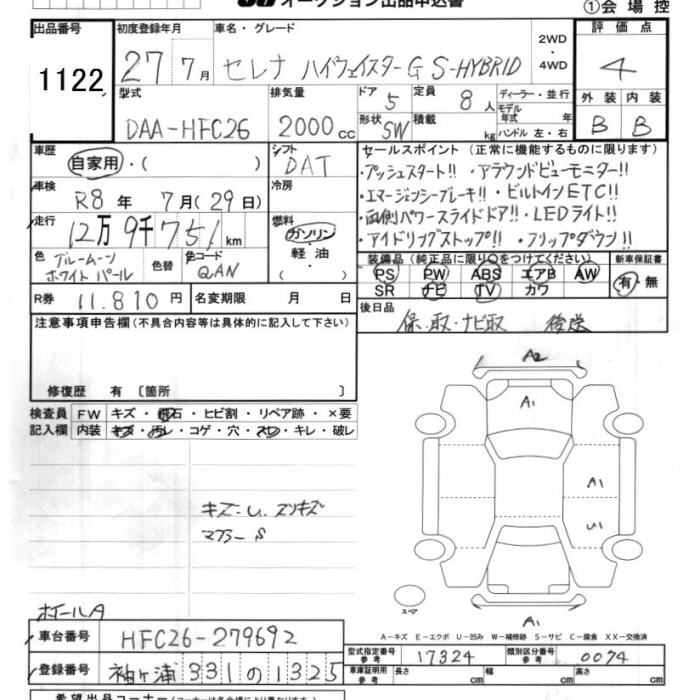 オークション出品申込書
①会場控
出品番号 初度登録年月 車名・グレード 2WD・4WD 評価点
1122 27年 7月 セレナ ハイウェイスターG S-HYBRID 4
型式 排気量 ドア 5 定員 8人 ディーラー・並行 外装 内装
DAA-HFC26 2000cc 形状 SW 積載 kg モデル年式 年 ハンドル 左・右 B B
車歴 シフト セールスポイント (正常に機能するものに限ります)
自家用・( ) DAT ・プッシュスタート!! ・アラウンドビューモニター!!
車検 R8年 7月(29日) 冷房 ・エマージェンシーブレーキ!! ・ビルトインETC!!
走行 12万9千751km 燃料 ガソリン・軽油・( ) ・両側パワースライドドア!! ・LEDライト!!
・アイドリングストップ!! ・フリップダウン!!
色 ブルームーンホワイトパール 色替 色コード QAN
装備品 (純正品に限り○をつけてください) 新車保証書
PS PW ABS エアB AW 有・無
SR ナビ TV カワ
R券 11.810円 名変期限 月 日
後日品 保、取・ナビ取 後送
注意事項申告欄 (不具合内容等は具体的に記入して下さい)
修復歴 有 〔箇所 〕
検査員 FW キズ・飛石・ヒビ割・リペア跡・×要
記入欄 内装 キズ・汚レ・コゲ・穴・スレ・キレ・破レ
A2
A1
A1
U1
キズ・U、スリキズ
マフラー S
スペア
A1
ホイールA
A-キズ E-エクボ U-凹み W-補修跡 S-サビ C-腐食 XX-交換済
車台番号 HFC26-279692
型式指定番号 参考 17324 類別区分番号 参考 0074
登録番号 袖ヶ浦 331 の 1325
車庫証明用 参考 長さ cm 幅 cm 高さ cm
希望出品コーナー